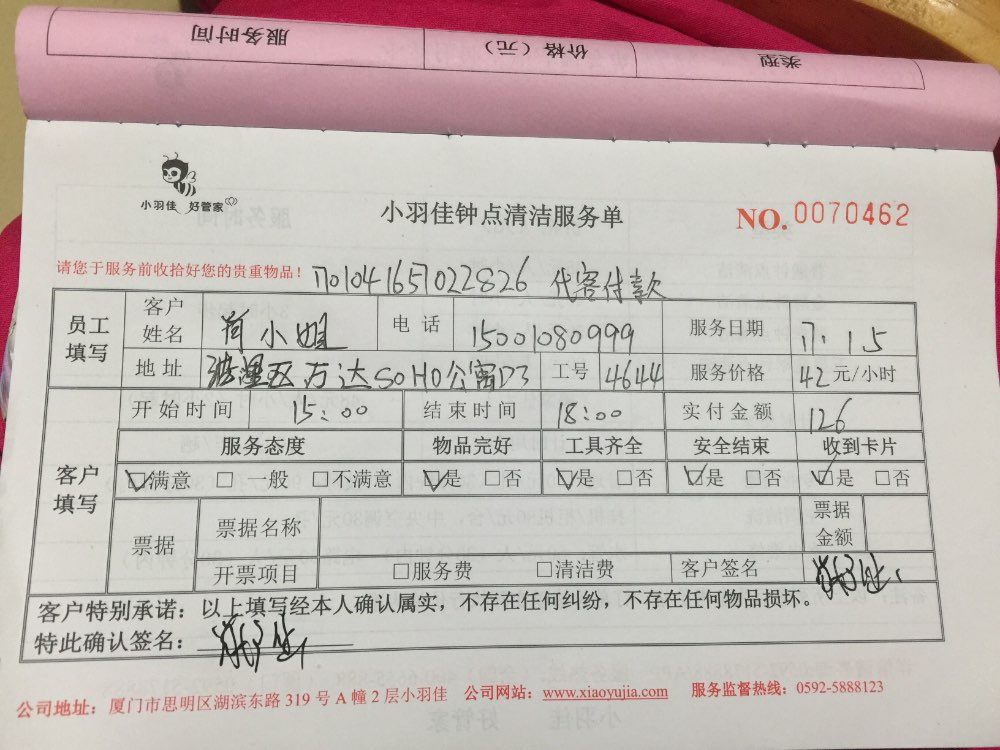 服务时间 价格（元） 类型
小羽佳 好管家
小羽佳钟点清洁服务单
NO. 0070462
请您于服务前收拾好您的贵重物品！
代客付款
员工填写 客户姓名 小姐 电话 15001080999 服务日期 17. 1. 5
地址 万达SOHO公寓D3 工号 4644 服务价格 42 元/小时
开始时间 15:00 结束时间 18:00 实付金额 126
客户填写 服务态度 物品完好 工具齐全 安全结束 收到卡片
☑满意 □ 一般 □不满意 ☑是 □否 ☑是 □否 ☑是 □否 ☑是 □否
票据 票据名称 票据金额
开票项目 □服务费 □清洁费 客户签名
客户特别承诺：以上填写经本人确认属实，不存在任何纠纷，不存在任何物品损坏。
特此确认签名：
公司地址：厦门市思明区湖滨东路 319 号 A 幢 2 层小羽佳 公司网站：www.xiaoyujia.com 服务监督热线：0592-5888123